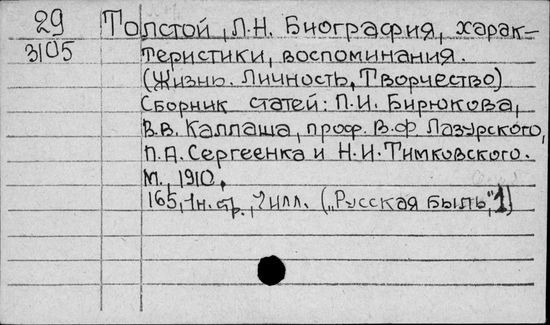 29
3/05
Толстой, Л.Н. Биография, харак-
теристики, воспоминания.
(Жизнь. Личность, Творчество)
Сборник статей: П.И. Бирюкова,
В.В. Каллаша, проф. В.Ф Лазурского,
П.А. Сергеенка и Н.И. Тимковского.
М., 1910,
165, 1н. стр., 7 илл. („Русская быль", 1)